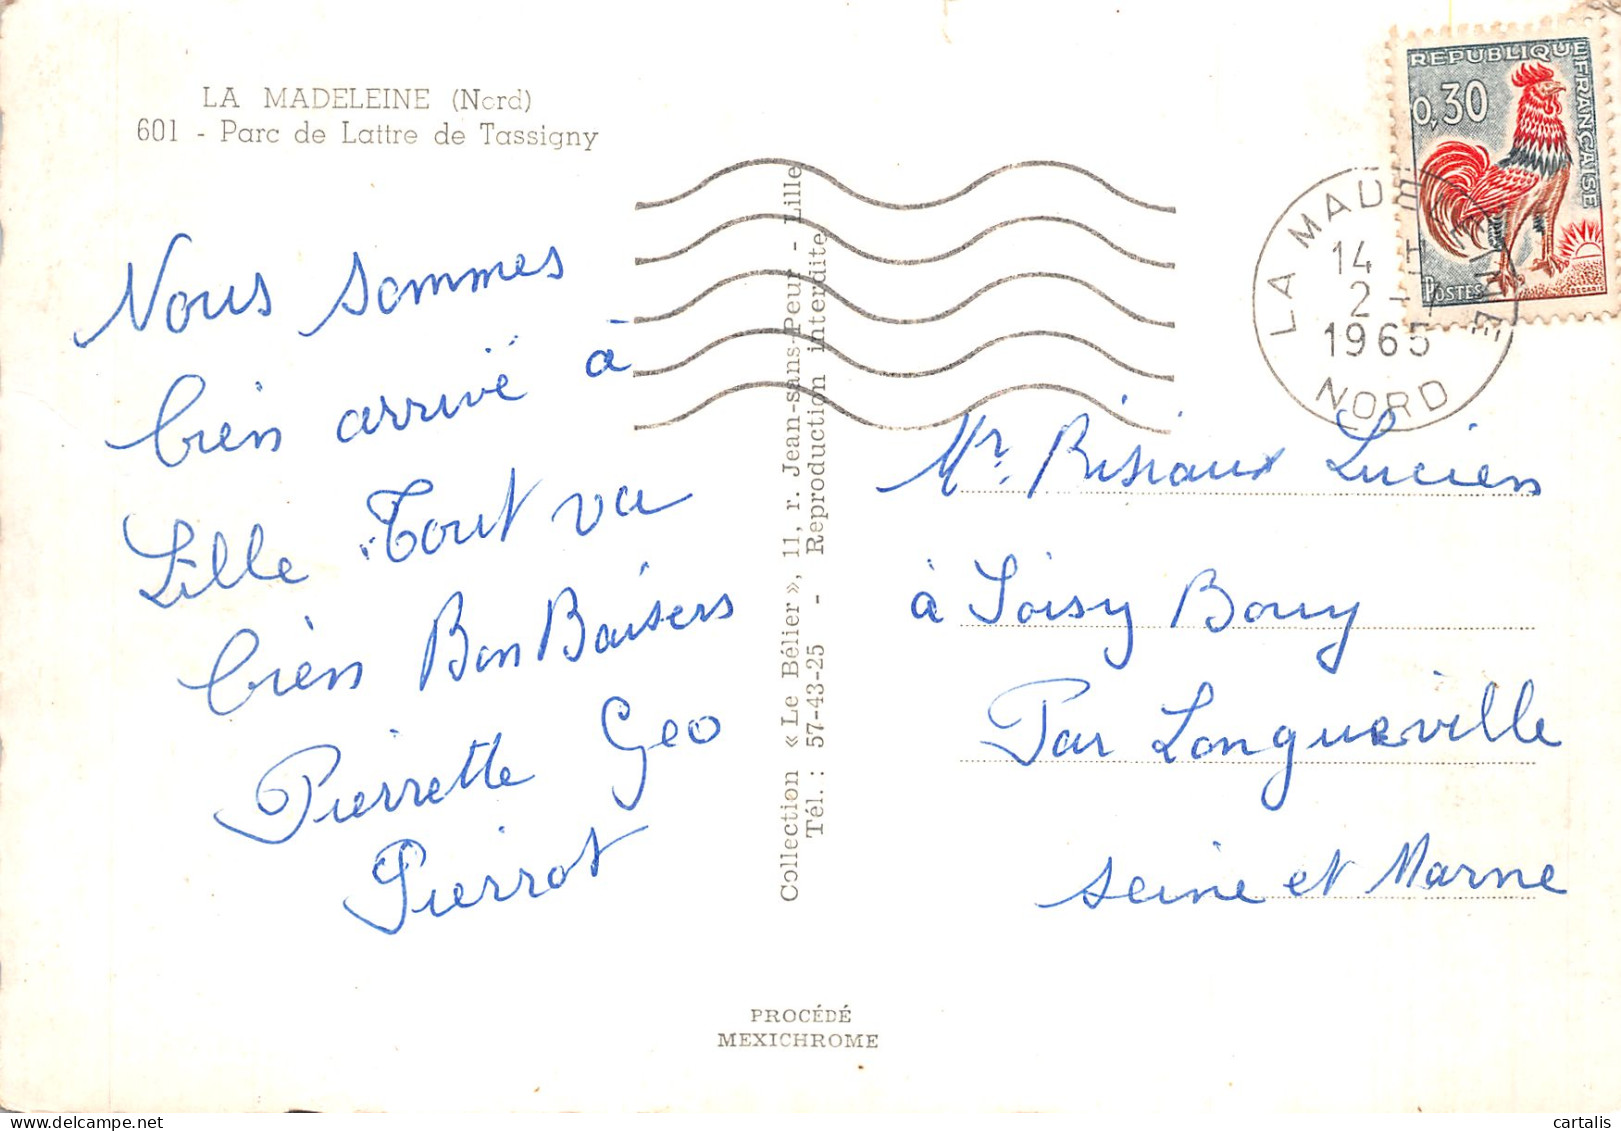 LA MADELEINE (Nord)
601 - Parc de Lattre de Tassigny
Nous sommes
bien arrivé à
Lille Tout va
bien Bon Baisers
Pierrette Geo
Pierrot
Collection « Le Bélier », 11, r. Jean-sans-Peur - Lille
Tél. : 57-43-25 - Reproduction interdite
REPUBLIQUE FRANÇAISE
0,30
POSTES
DECARIS
LA MADELEINE
14 H
2 - 7
1965
NORD
Mr. Risiaux Lucien
à Soisy Bouy
Par Longueville
seine et Marne
PROCÉDÉ
MEXICHROME
cartalis